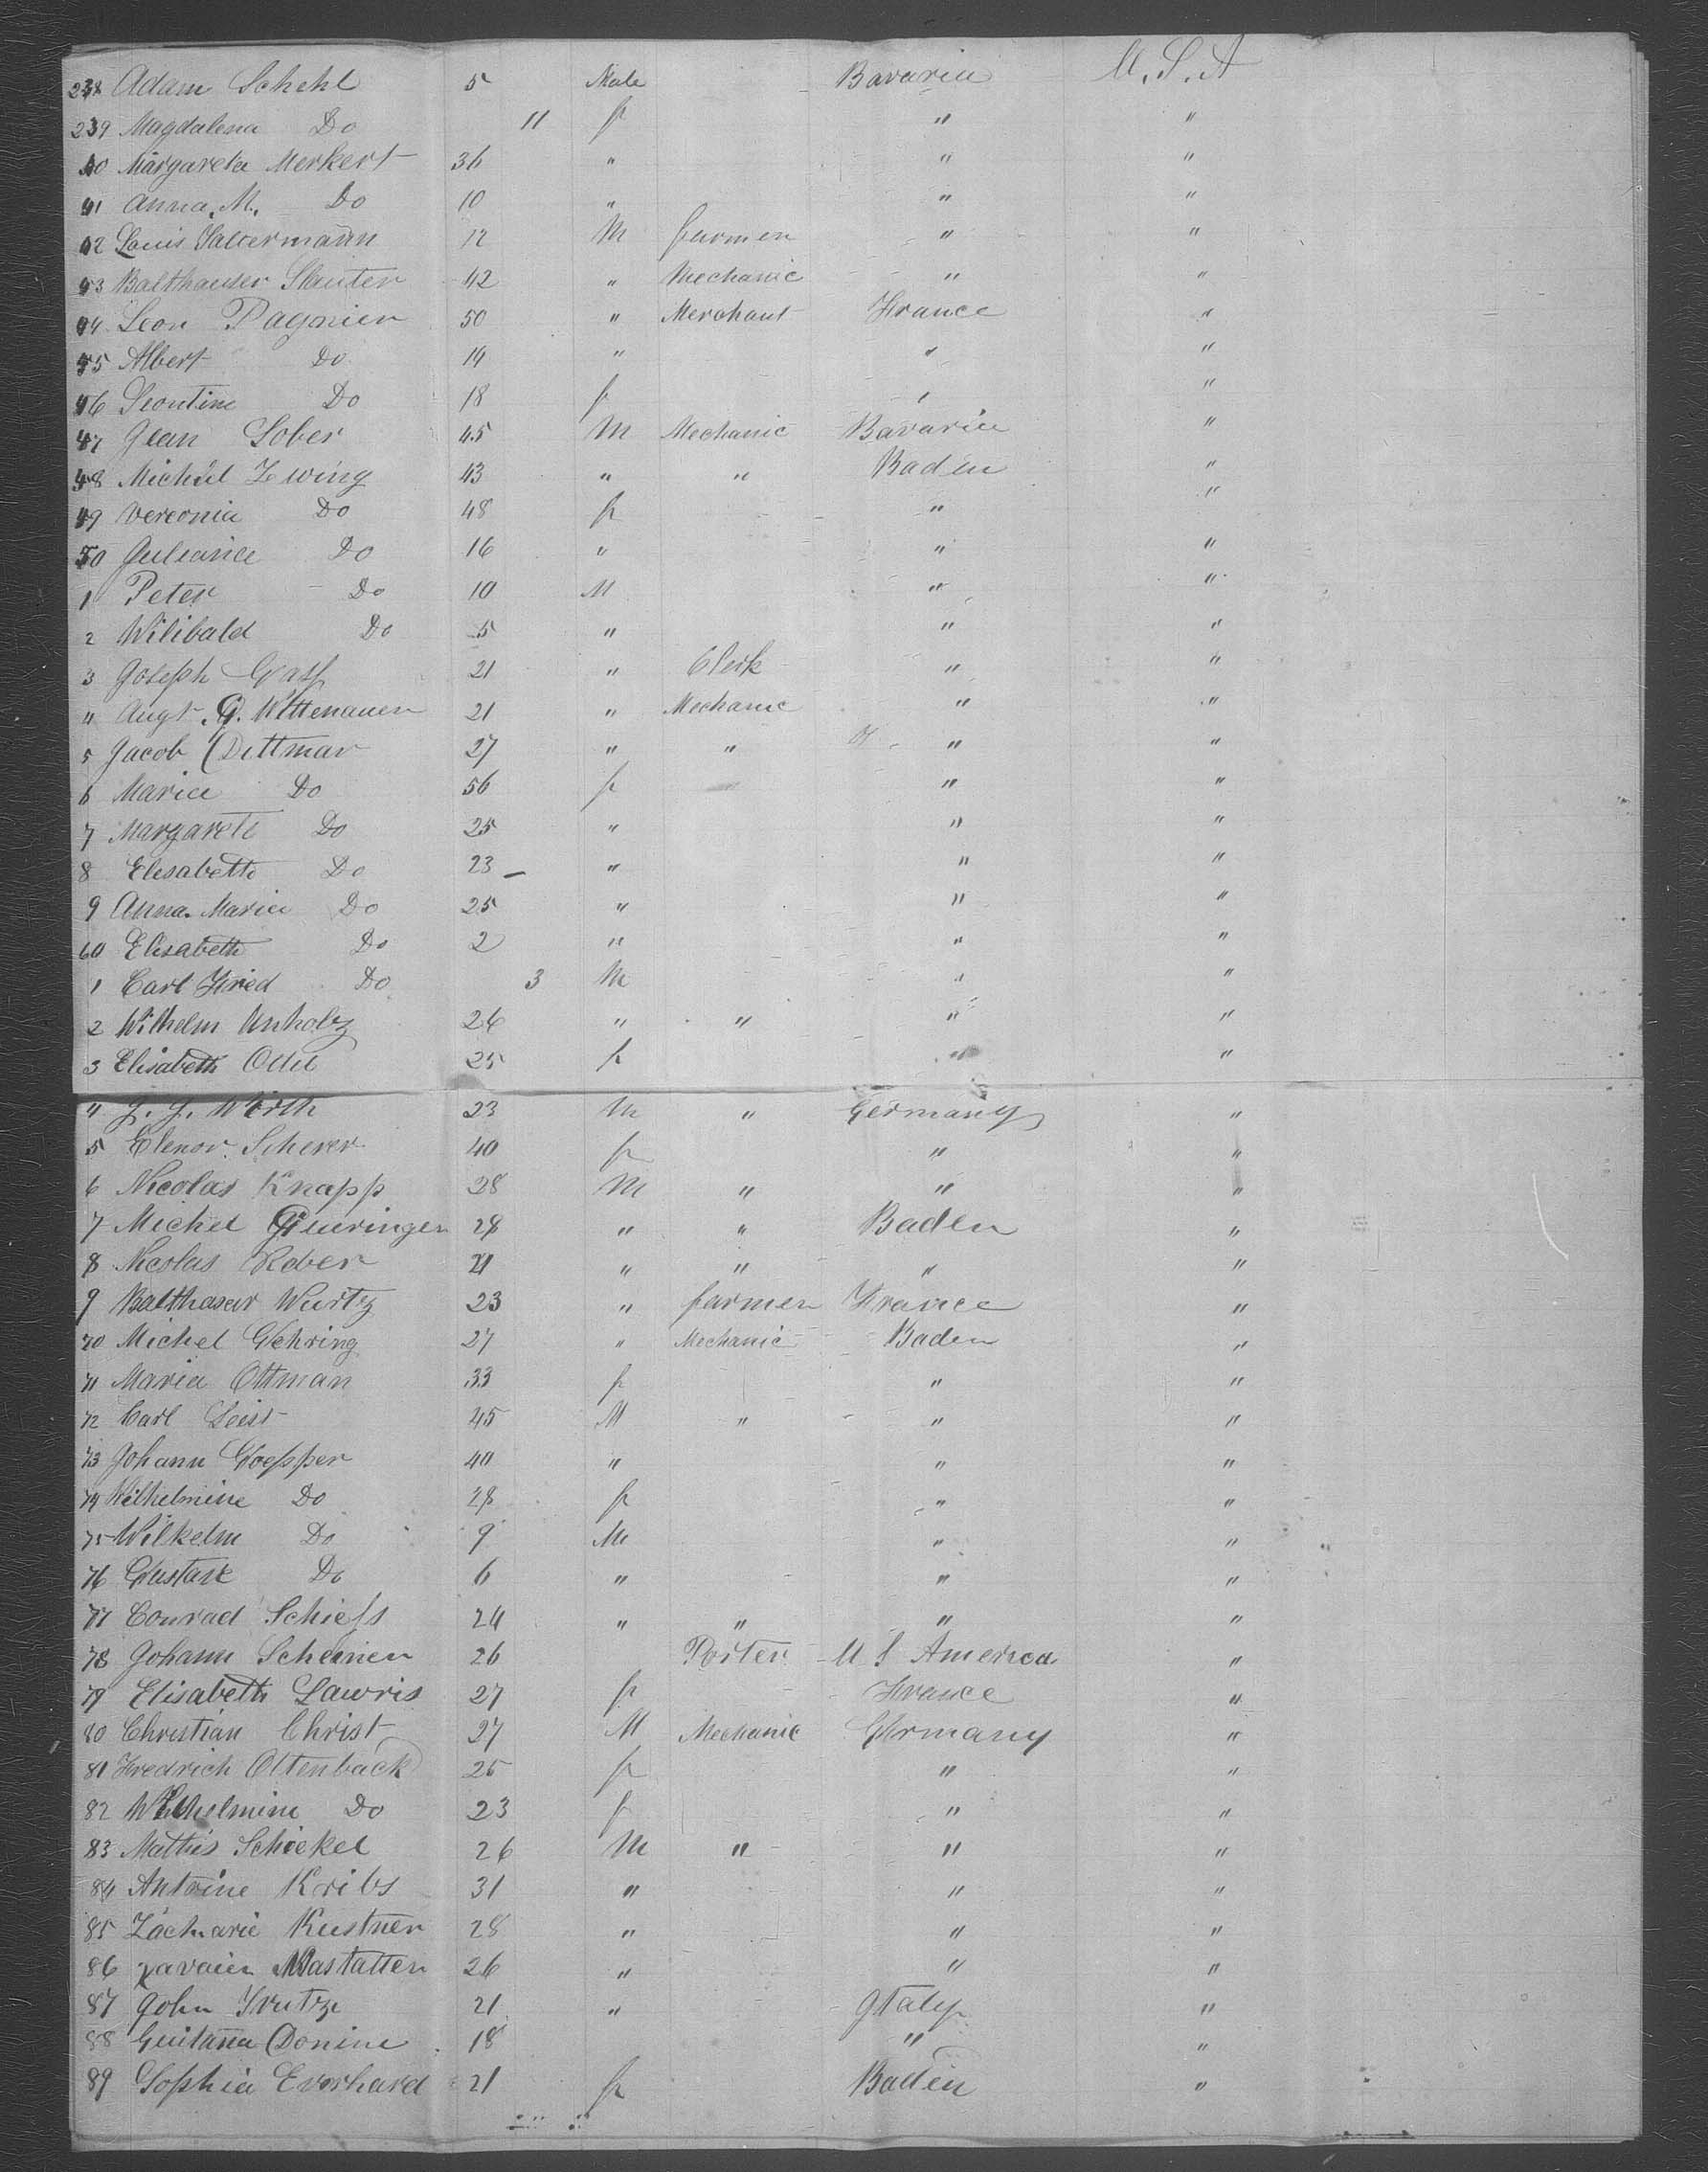 238 Adam Schehl 5 Male Bavaria U.S.A
239 Magdalena Do 11 f " "
40 Margareta Merkert 36 " " "
41 Anna M. Do 10 " " "
42 Louis Saltermann 12 M farmer " "
43 Balthauser Slauter 42 " Mechanic " "
44 Leon Pagnier 50 " Merchant France "
45 Albert Do 14 " " "
46 Leontine Do 18 f " "
47 Jean Sober 45 M Mechanic Bavaria "
48 Michel Zwing 43 " " Baden "
49 Vereonia Do 48 f " "
50 Juliania Do 16 " " "
1 Peter Do 10 M " "
2 Wilibald Do 5 " " "
3 Joseph 21 " Clerk " "
4 Augt. G. Wittenauer 21 " Mechanic " "
5 Jacob Dittmar 27 " " " "
6 Maria Do 56 f " "
7 Margarete Do 25 " " "
8 Elisabette Do 23 " " "
9 Anna Maria Do 25 " " "
60 Elisabeth Do 2 " " "
1 Carl Fried Do 3 M " "
2 Wilhelm Unholz 26 " " " "
3 Elisabeth 25 f " "
4 J. J. Wirth 23 M " Germany "
5 Elenor Scherer 40 f " "
6 Nicolas Knapp 28 M " " "
7 Michel Geuringer 28 " " Baden "
8 Nicolas Rober 21 " " " "
9 Balthasar Wurtz 23 " farmer France "
70 Michel Gehring 27 " Mechanic Baden "
71 Maria Ottman 33 f " "
72 Carl Leist 45 M " " "
73 Johann Goepper 40 " " "
74 Wilhelmine Do 28 f " "
75 Wilhelm Do 9 M " "
76 Gustave Do 6 " " "
77 Conrad Schiefs 24 " " " "
78 Johann Scheiner 26 Porter U S America "
79 Elisabeth Lawris 27 f France "
80 Christian Christ 27 M Mechanic Germany "
81 Fredrich Ottenback 25 f " "
82 Wilhelmine Do 23 f " "
83 Mathis Schickel 26 M " " "
84 Antoine Kribs 31 " " "
85 Zacharie Kustner 28 " " "
86 Xavaier Mastatter 26 " " "
87 John 21 " Italy "
88 Guitana Donine 18 " "
89 Sophia Everhard 21 f Baden "